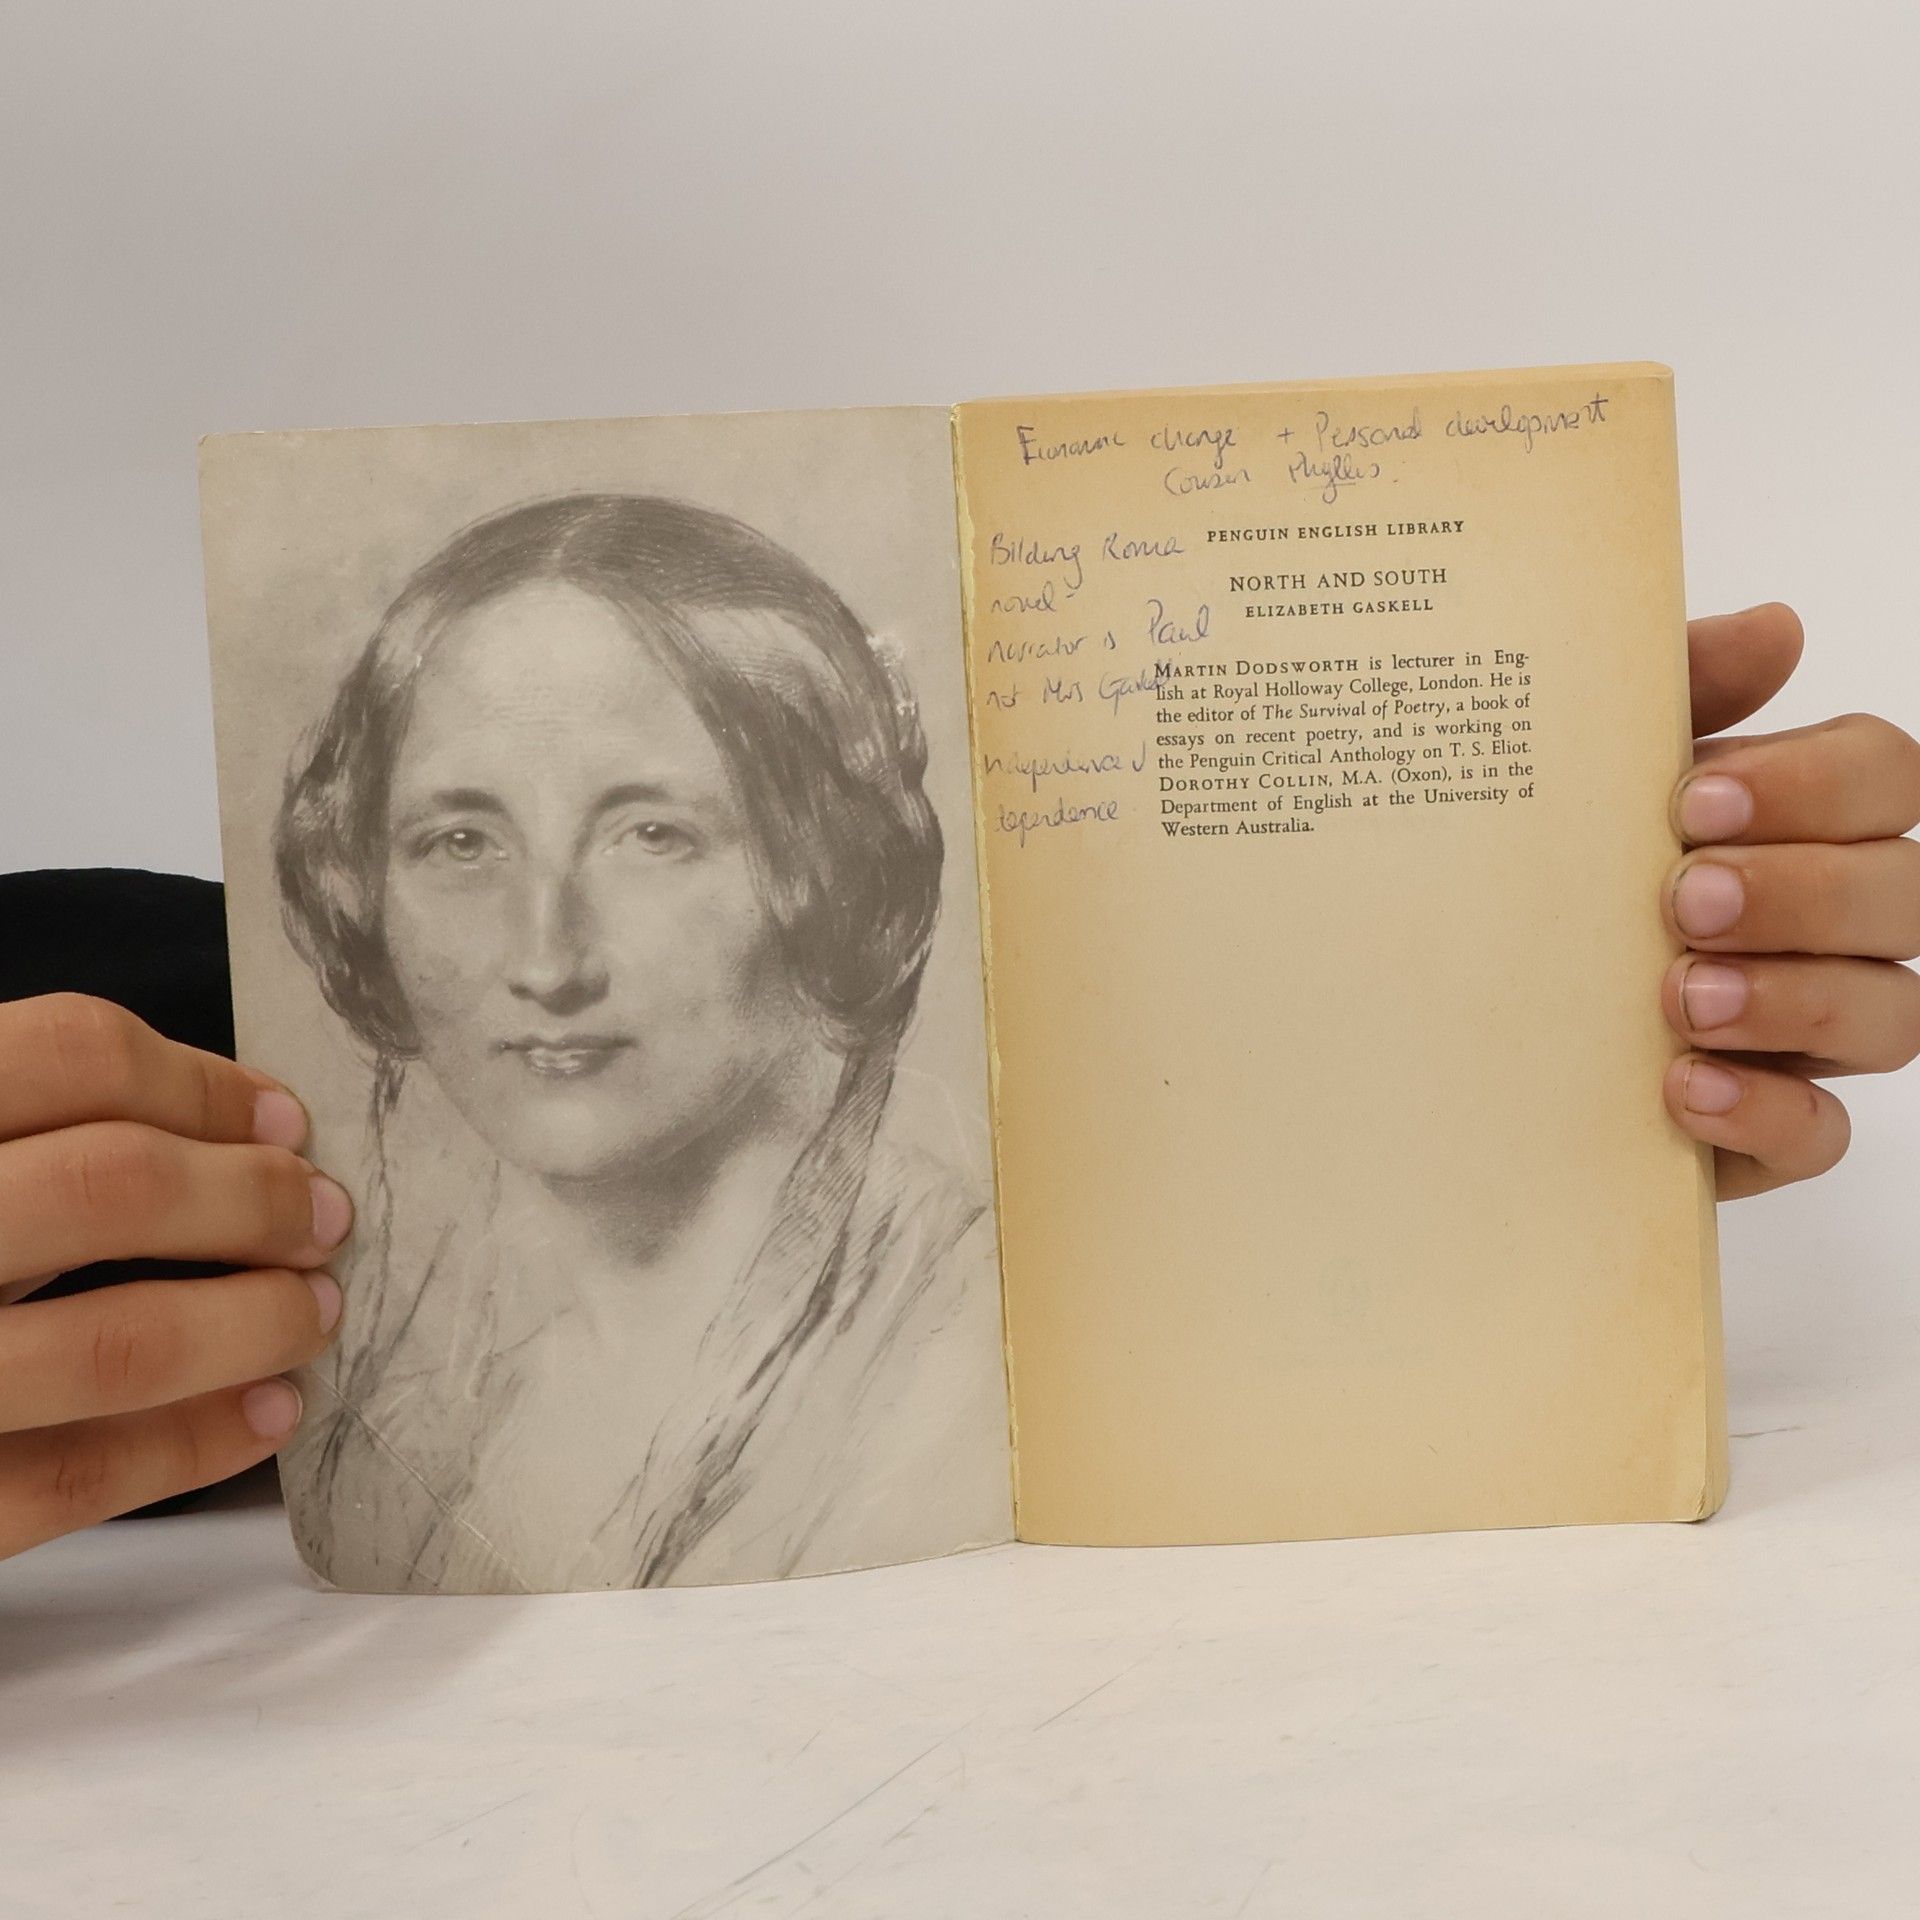 Economic change + Personal development
Cousin Phyllis.
Bildung Roma
novel -
narrator is Paul
not Mrs Gaskell
independence v
dependence
PENGUIN ENGLISH LIBRARY
NORTH AND SOUTH
ELIZABETH GASKELL
MARTIN DODSWORTH is lecturer in Eng-
lish at Royal Holloway College, London. He is
the editor of The Survival of Poetry, a book of
essays on recent poetry, and is working on
the Penguin Critical Anthology on T. S. Eliot.
DOROTHY COLLIN, M.A. (Oxon), is in the
Department of English at the University of
Western Australia.